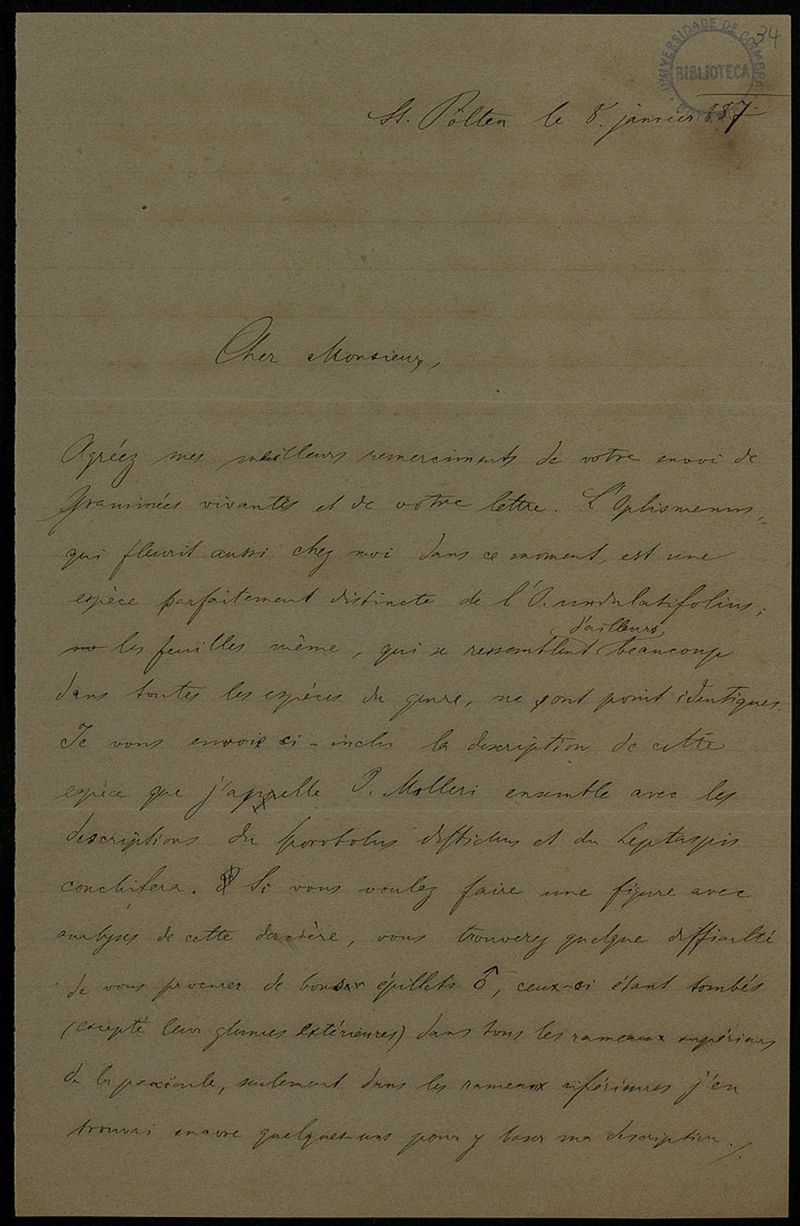 34
UNIVERSIDADE DE COIMBRA
BIBLIOTECA
St. Pölten le 8. janvier 887
Cher Monsieur,
Agréez mes meilleurs remerciments de votre envoi de
Graminées vivantes et de votre lettre. L'Oplismenus,
qui fleurit aussi chez moi dans ce moment, est une
espèce parfaitement distincte de l'O. undulatifolius;
les feuilles même, qui se ressemblent d'ailleurs, beaucoup
dans toutes les espèces du genre, ne sont point identiques.
Je vous envoie ci-inclus la description de cette
espèce que j'appelle O. Molleri ensemble avec les
descriptions du Sporobolus distichus et du Leptaspis
conchifera. Si vous voulez faire une figure avec
analyses de cette dernière, vous trouverez quelque difficulté
de vous procurer de bons épillets ♂, ceux-ci étant tombés
(excepté leur glumes extérieures) dans tous les rameaux supérieurs
de la panicule, seulement dans les rameaux inférieures j'en
trouvai encore quelques-uns pour y baser ma description./.